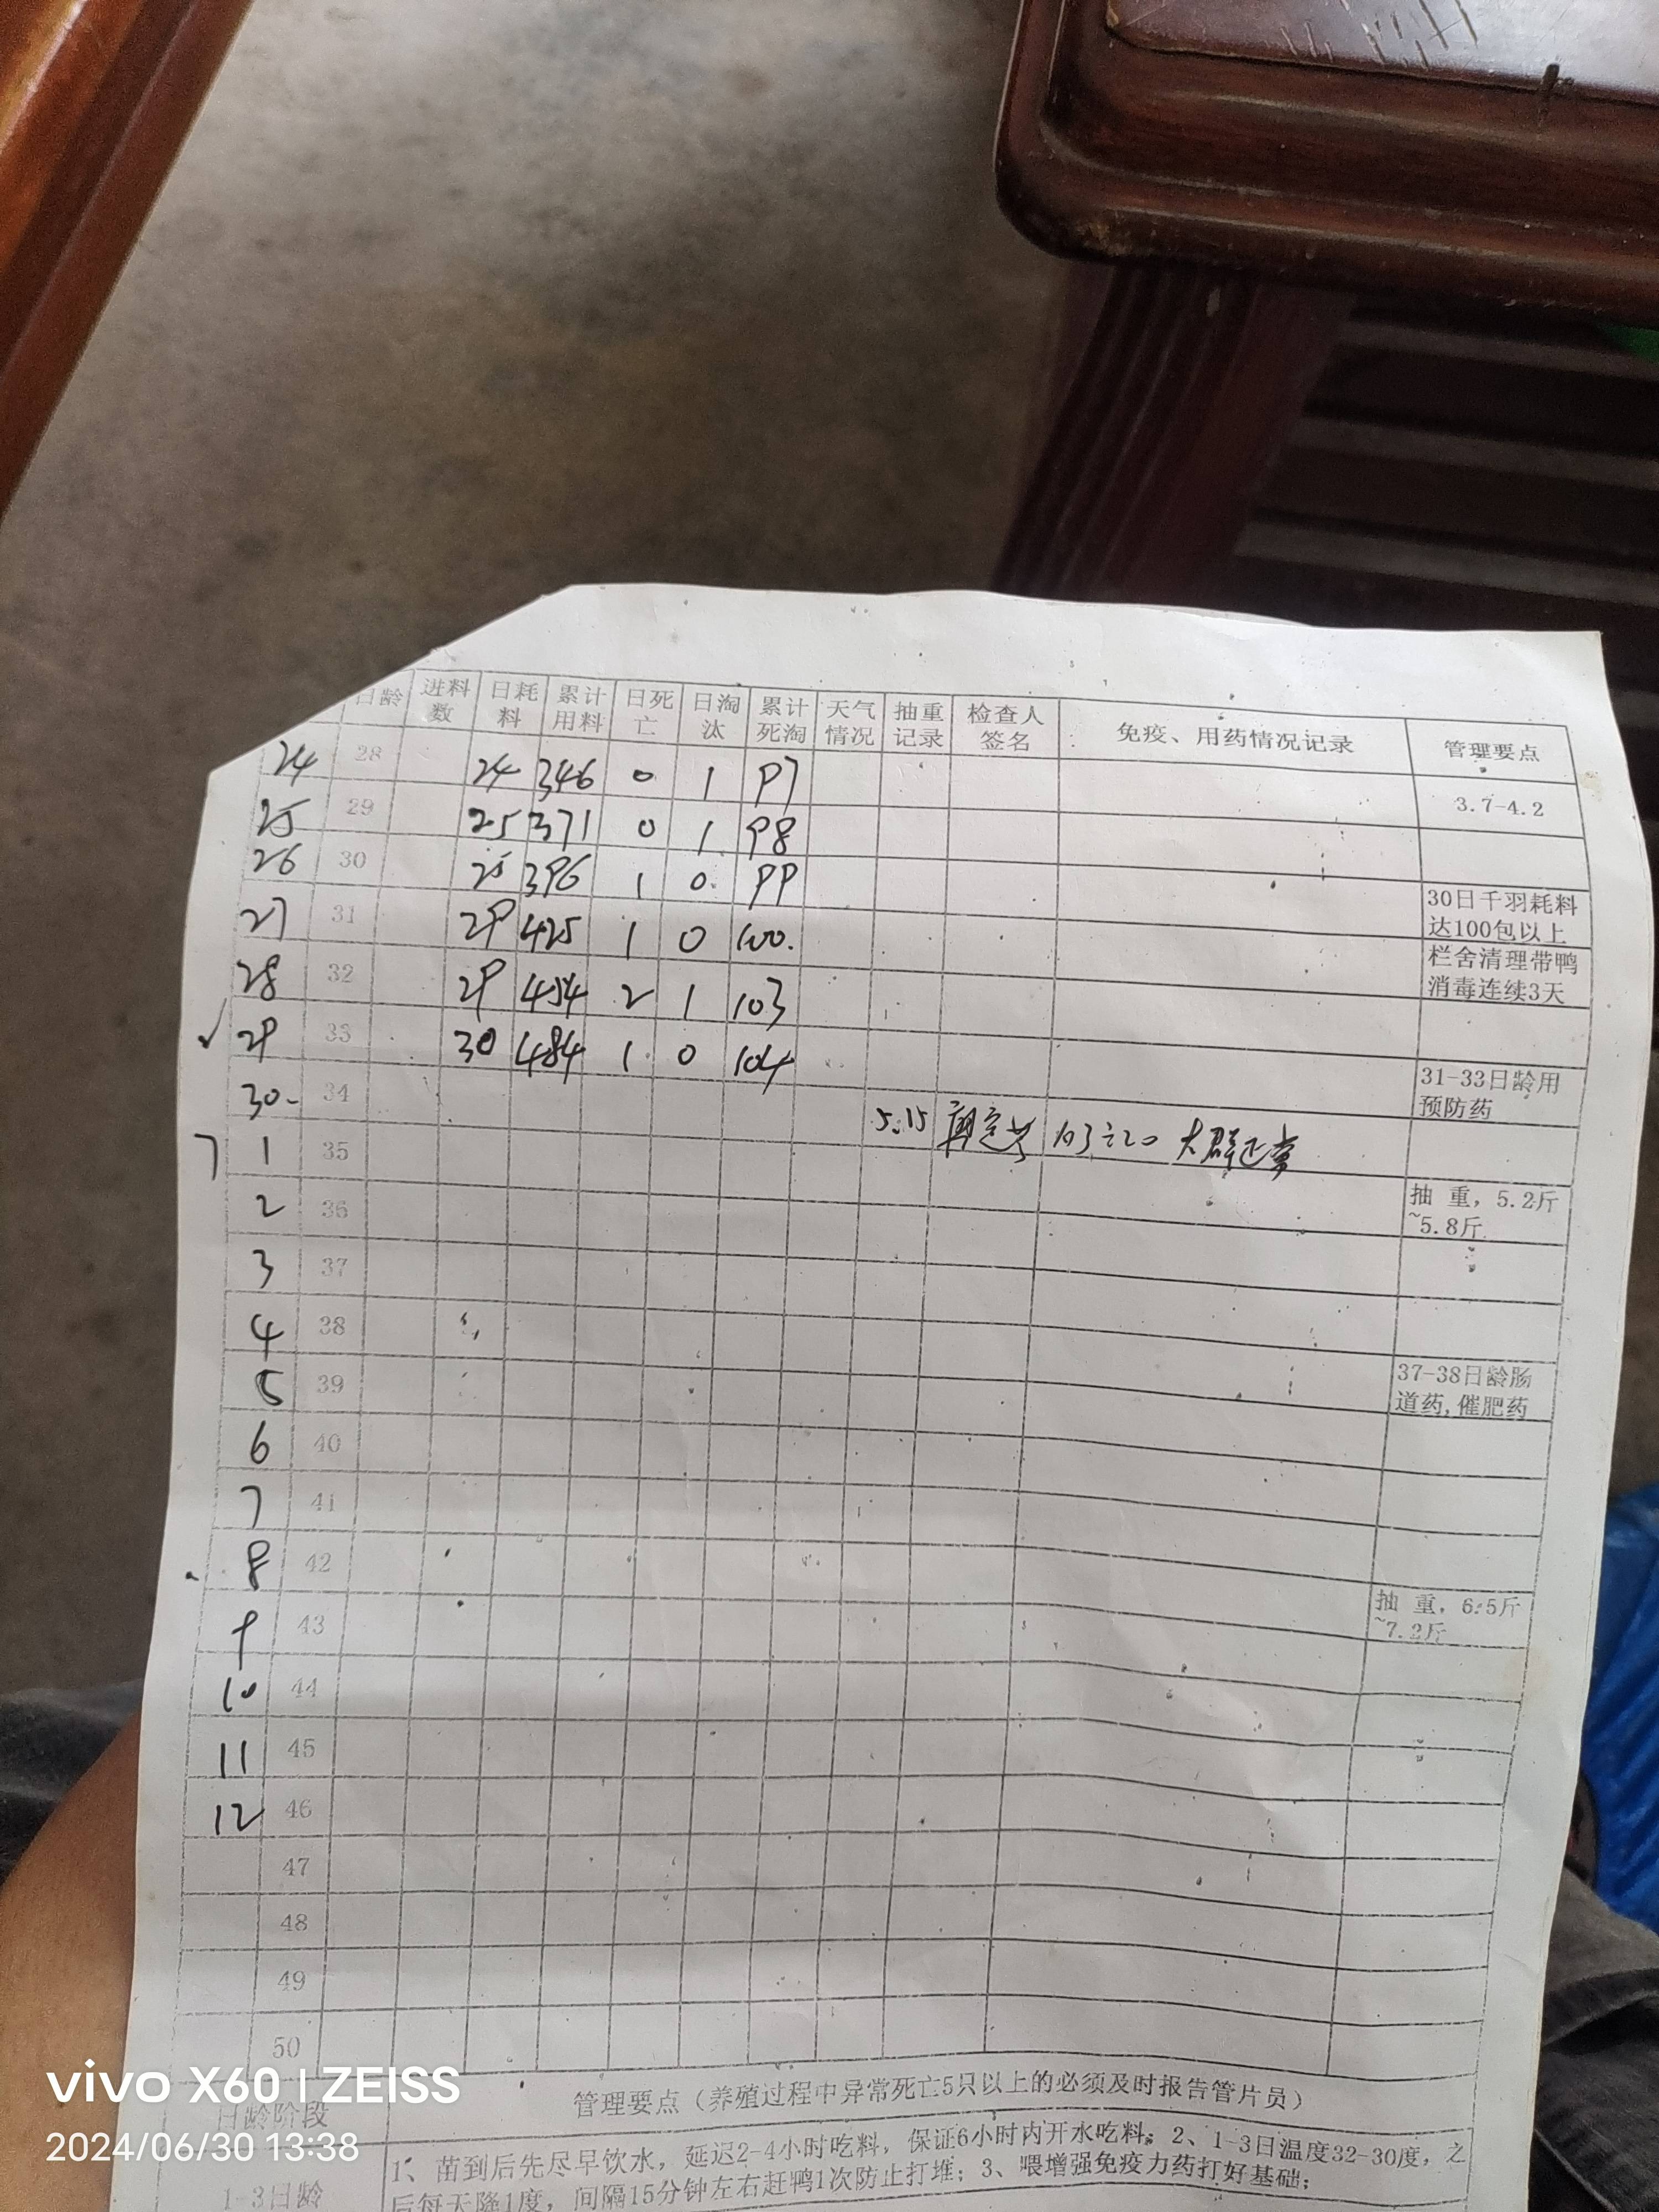 日龄 进料数 日耗料 累计用料 日死亡 日淘汰 累计死淘 天气情况 抽重记录 检查人签名 免疫、用药情况记录 管理要点
24 28 24 346 0 1 97
3.7-4.2
25 29 25 371 0 1 98
26 30 25 396 1 0 99
30日千羽耗料
达100包以上
27 31 29 425 1 0 100.
栏舍清理带鸭
消毒连续3天
28 32 29 454 2 1 103
✓ 29 33 30 484 1 0 104
31-33日龄用
预防药
30 34 5.15 大群正常
7 1 35
2 36
抽 重，5.2斤
~5.8斤
3 37
4 38
37-38日龄肠
道药,催肥药
5 39
6 40
7 41
8 42
抽 重，6.5斤
~7.2斤
9 43
10 44
11 45
12 46
47
48
49
50
日龄阶段 管理要点（养殖过程中异常死亡5只以上的必须及时报告管片员）
1-3日龄 1、苗到后先尽早饮水，延迟2-4小时吃料，保证6小时内开水吃料；2、1-3日温度32-30度，之
后每天降1度，间隔15分钟左右赶鸭1次防止打堆；3、喂增强免疫力药打好基础；
vivo X60 | ZEISS
2024/06/30 13:38